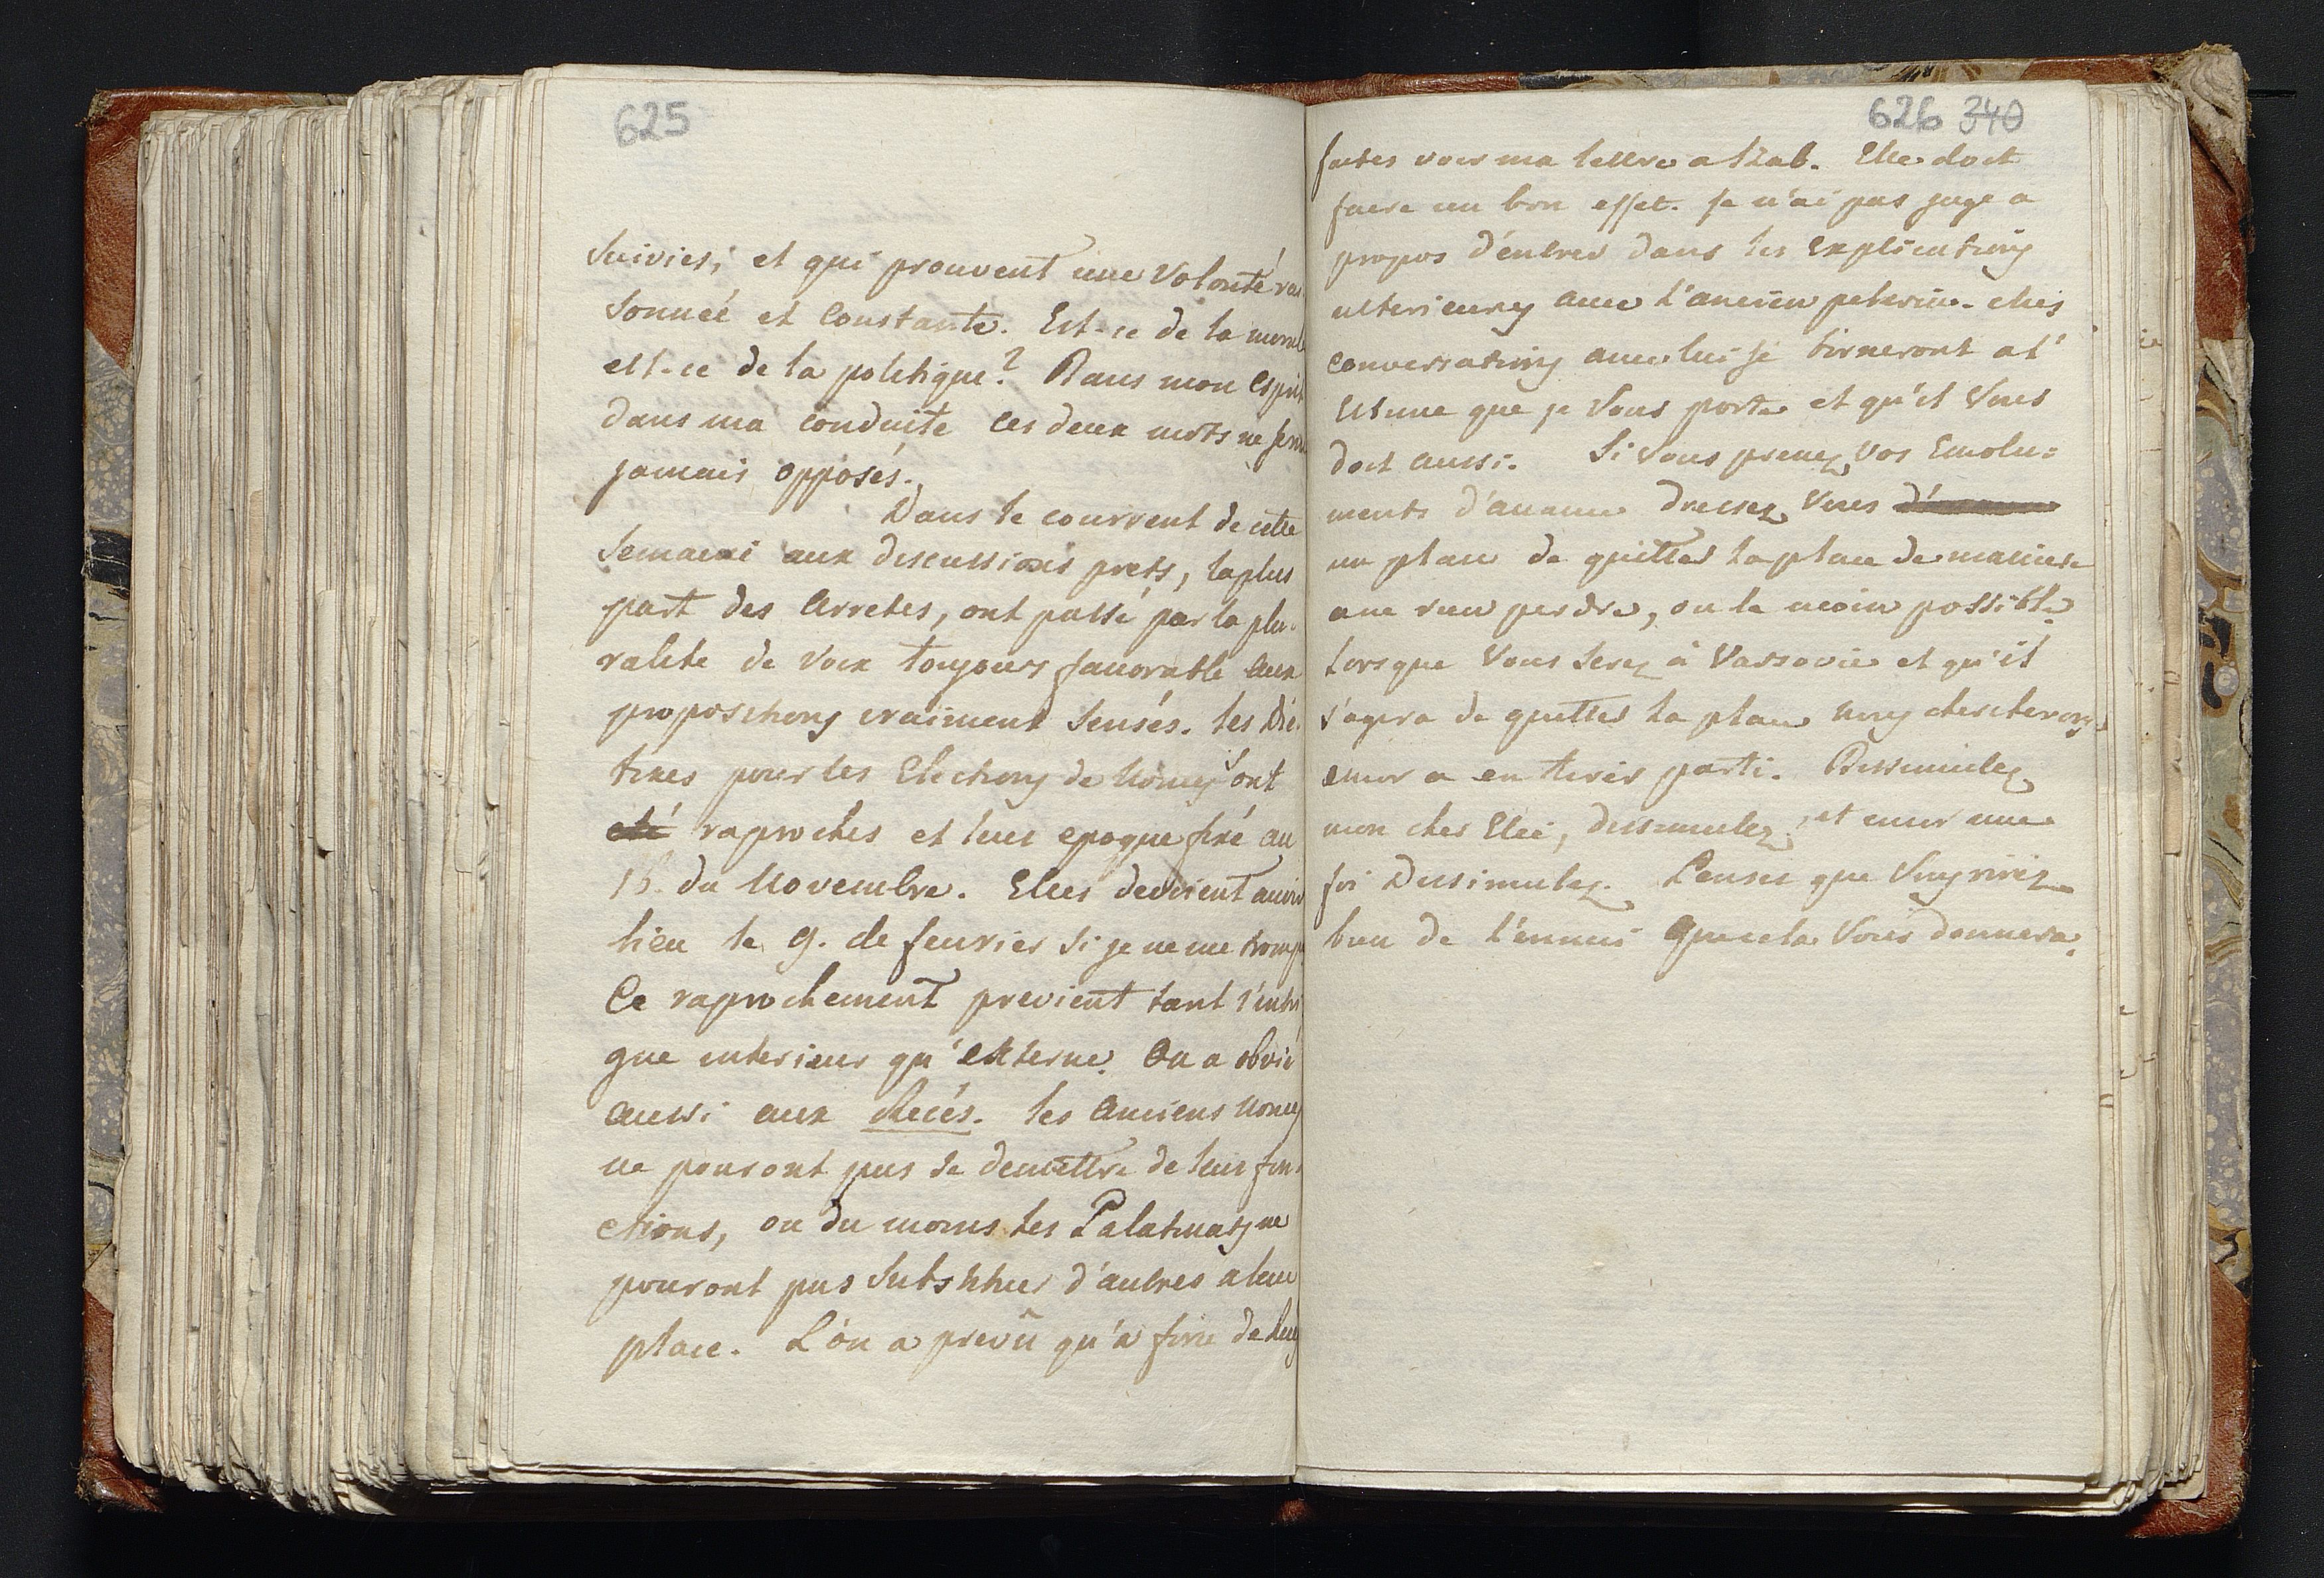 625
Suivies, et qui prouvent une Volonté rai
Sonneé et Constante. Est-ce de la moral
est-ce de la politique? Dans mon Esprit
dans ma conduite ces deux mots ne Sero
jamais opposés.
Dans le courrent de cette
Semaine aux discussions prets, la plus
part des Arretes, ont passé par la plu-
ralite de Voix toujours favorable aux
propositions vraiment Sensés. les Diè-
tines pour les Elections de Nonces Sont
eté raproches et leur epoque fixé au
16. du Novembre. Elles devoient avoir
lieu le 9. de fevrier Si je ne me tromp
Ce raprochement previent tant l'intri
gue interieur qu'externe. On a obvié
aussi aux Recés. les Anciens Nonces
ne pouront pas se demettre de leur fon
ctions, ou du moins les Palatinats ne
pouront pas Substituer d'autres a leur
place. L'on a prevû qu'a force de
626 340
faites voir ma lettre a Stab. Elle doit
faire un bon effet. Je n'ai pas jugé a
propos d'entrer dans les Explications
ulterieures avec l'ancien Mes
conversations avec lui se borneront a l'
Estime que je Vous porte et qu'il Vous
doit aussi. Si Vous prenez Vos Emolu=
ments d'avance dressez Vous
un plan de quitter la place de maniere
a ne rien perdre, ou le moin possible.
Lorsque Vous Serez à Varsovie et qu'il
s'agira de quitter la place nous chercherons
encor a en tirer parti. Dissimulez
mon cher Elie, dissimulez, et encor une
foi Dissimulez. Pensez que Vous rirez
bien de l'ennui que cela Vous donnera.